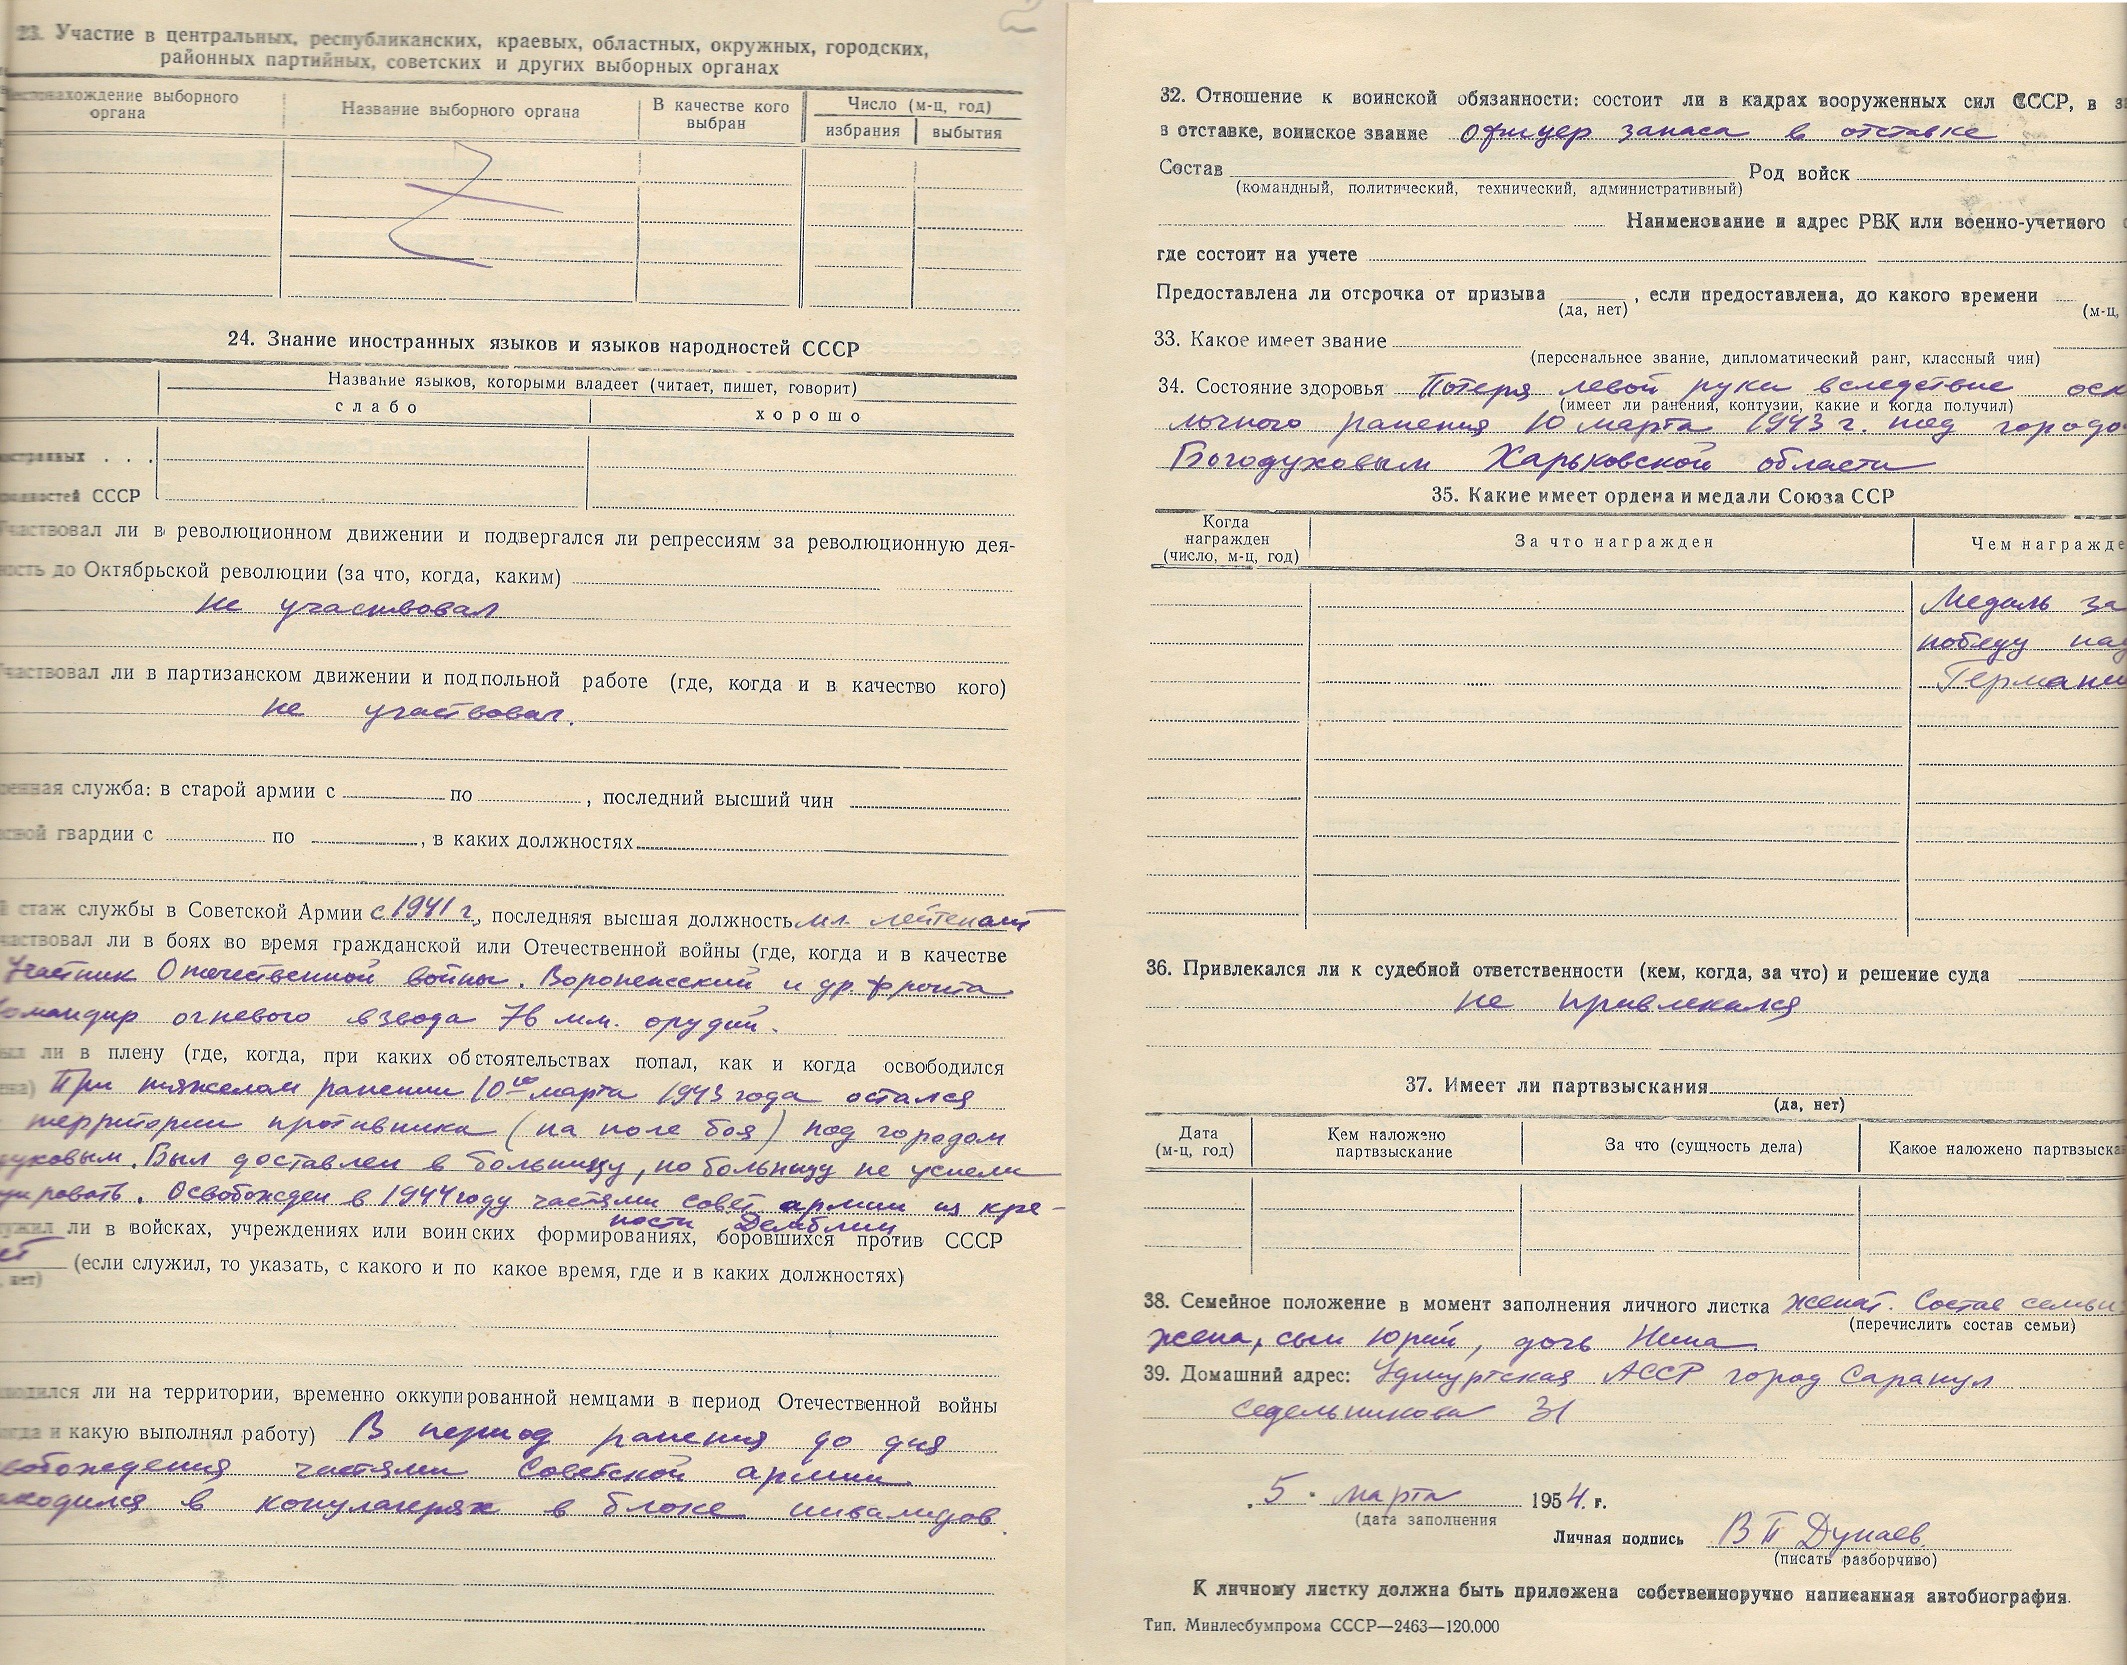 23. Участие в центральных, республиканских, краевых, областных, окружных, городских,
районных партийных, советских и других выборных органах
местонахождение выборного
органа
Название выборного органа
В качестве кого
выбран
Число (м-ц, год)
избрания
выбытия
24. Знание иностранных языков и языков народностей СССР
Название языков, которыми владеет (читает, пишет, говорит)
слабо
хорошо
остранных . . .
родностей СССР
Участвовал ли в революционном движении и подвергался ли репрессиям за революционную дея-
ность до Октябрьской революции (за что, когда, каким)
не участвовал
Участвовал ли в партизанском движении и подпольной работе (где, когда и в качество кого)
не участвовал.
енная служба: в старой армии с по , последний высший чин
сной гвардии с по , в каких должностях
й стаж службы в Советской Армии с 1941 г., последняя высшая должность мл. лейтенант
частвовал ли в боях во время гражданской или Отечественной войны (где, когда и в качестве
Участник Отечественной войны. Воронежский и др. фронта
омандир огневого взвода 76 мм. орудий.
ыл ли в плену (где, когда, при каких обстоятельствах попал, как и когда освободился
ена) При тяжелом ранении 10го марта 1943 года остался
территории противника (на поле боя) под городом
духовым. Был доставлен в больницу, но больницу не успели
ировать. Освобожден в 1944 году частями совет. армии из кре-
пости Демблин
ужил ли в войсках, учреждениях или воинских формированиях, боровшихся против СССР
ет
, нет) (если служил, то указать, с какого и по какое время, где и в каких должностях)
ходился ли на территории, временно оккупированной немцами в период Отечественной войны
огда и какую выполнял работу) В период ранения до дня
вобождения частями Советской армии
аходился в концлагерях в блоке инвалидов.
32. Отношение к воинской обязанности: состоит ли в кадрах вооруженных сил СССР, в за
в отставке, воинское звание офицер запаса в отставке
Состав Род войск
(командный, политический, технический, административный)
Наименование и адрес РВК или военно-учетного с
где состоит на учете
Предоставлена ли отсрочка от призыва , если предоставлена, до какого времени
(да, нет) (м-ц,
33. Какое имеет звание
(персональное звание, дипломатический ранг, классный чин)
34. Состояние здоровья Потеря левой руки вследствие оск
(имеет ли ранения, контузии, какие и когда получил)
лочного ранения 10 марта 1943 г. под городо
Богодуховым Харьковской области
35. Какие имеет ордена и медали Союза ССР
Когда
награжден
(число, м-ц, год)
За что награжден
Чем награжде
Медаль за
победу над
Германи
36. Привлекался ли к судебной ответственности (кем, когда, за что) и решение суда
не привлекался
37. Имеет ли партвзыскания
(да, нет)
Дата
(м-ц, год)
Кем наложено
партвзыскание
За что (сущность дела)
Какое наложено партвзыска
38. Семейное положение в момент заполнения личного листка женат. Состав семьи:
(перечислить состав семьи)
жена, сын Юрий, дочь Нина.
39. Домашний адрес: Удмуртская АССР город Сарапул
Седельникова 31
„5" марта 1954. г.
(дата заполнения
Личная подпись В П Дунаев.
(писать разборчиво)
К личному листку должна быть приложена собственноручно написанная автобиография.
Тип. Минлесбумпрома СССР—2463—120.000